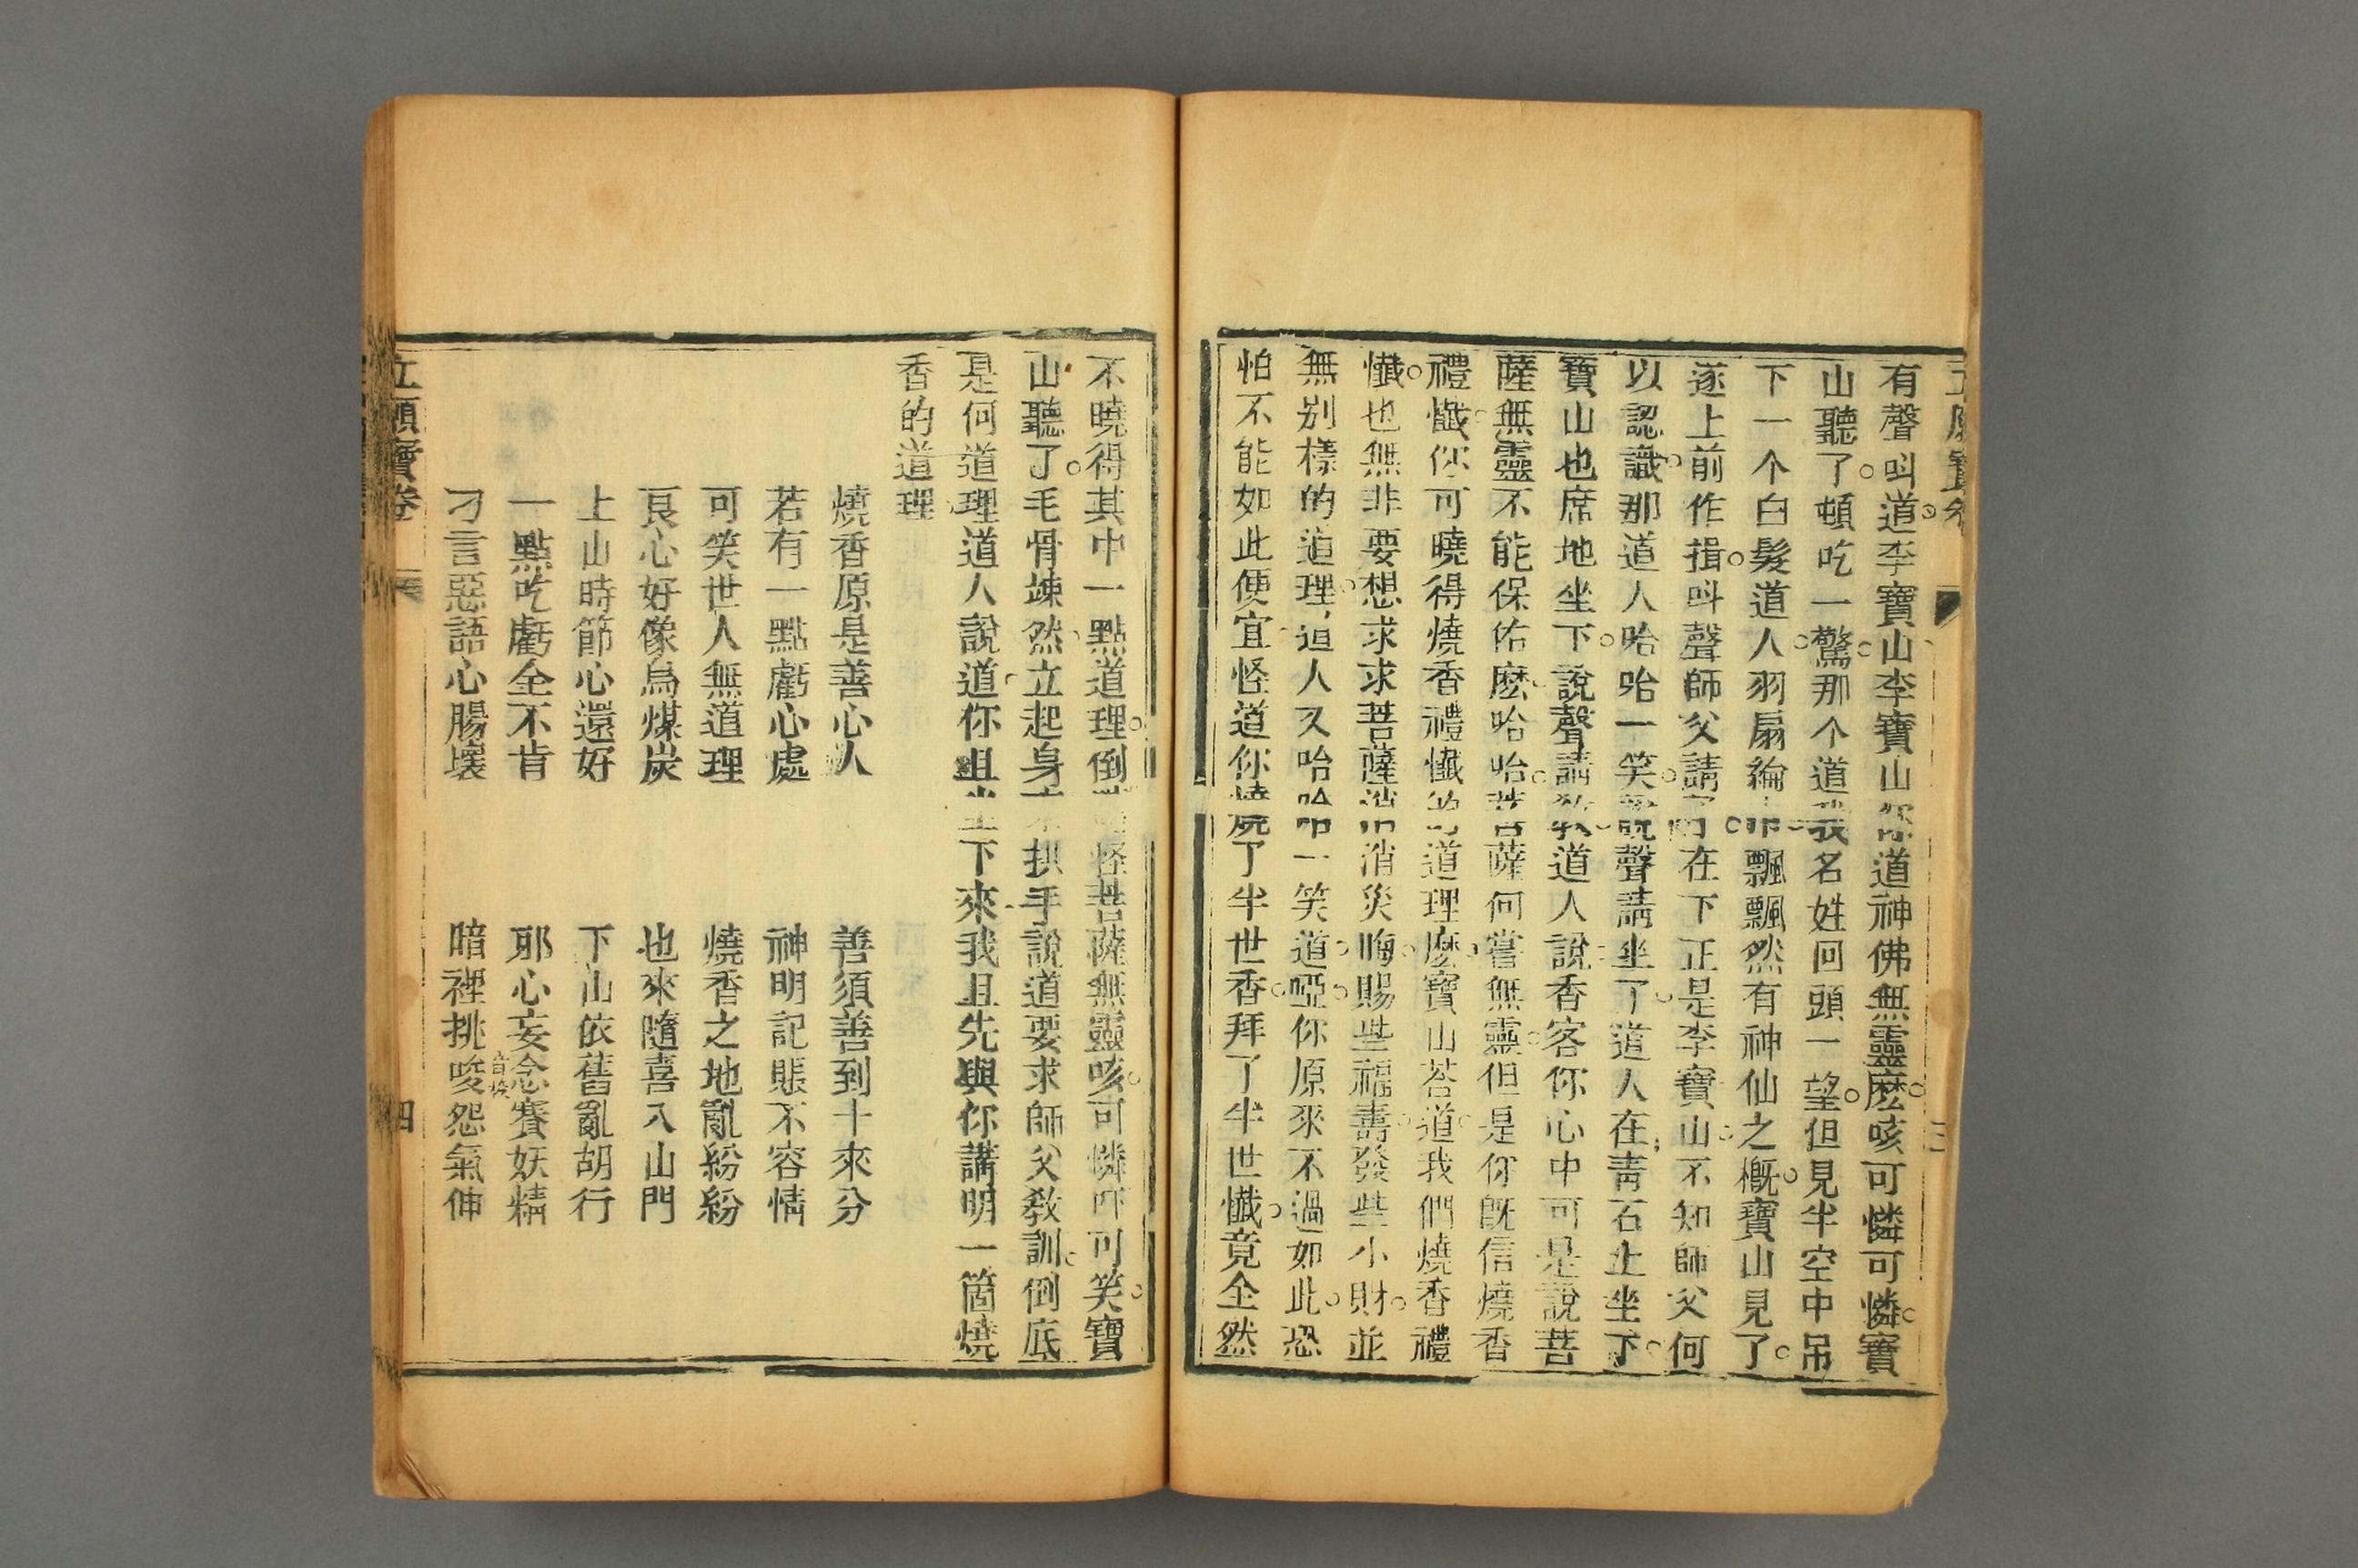 有聲呌道李寶山李寶山你道神佛無靈麽咳可憐可憐寶
山聽了頓吃一驚那个道我名姓回頭一望但見半空中吊
下一个白髮道人羽扇綸巾飄飄然有神仙之概寶山見了
遂上前作揖呌聲師父請了在下正是李寶山不知師父何
以認識那道人哈哈一笑說聲請坐了道人在靑石上坐下
寶山也席地坐下說聲請教道人說香客你心中可是說菩
薩無靈不能保佑麽哈哈菩薩何嘗無靈但是你旣信燒香
禮懺你可曉得燒香禮懺的道理麽寶山荅道我們燒香禮
懺也無非要想求求菩薩消災晦賜些福壽發些小財並
無别樣的道理道人又哈哈一笑道啞你原來不過如此恐
怕不能如此便宜怪道你燒了半世香拜了半世懺竟全然
不曉得其中一點道理倒怪菩薩無靈咳可憐吓可笑寶
山聽了毛骨竦然立起身來拱手說道要求師父教訓倒底
是何道理道人說道你且坐下來我且先與你講明一箇燒
香的道理
燒香原是善心人 善須善到十來分
若有一點虧心處 神明記賬不容情
可笑世人無道理 燒香之地亂紛紛
良心好像烏煤炭 也來隨喜入山門
上山時節心還好 下山依舊亂胡行
一點吃虧全不肯 耶心妄念賽妖精
刁言惡語心腸壞 暗裡挑唆怨氣伸
立願寶卷 四